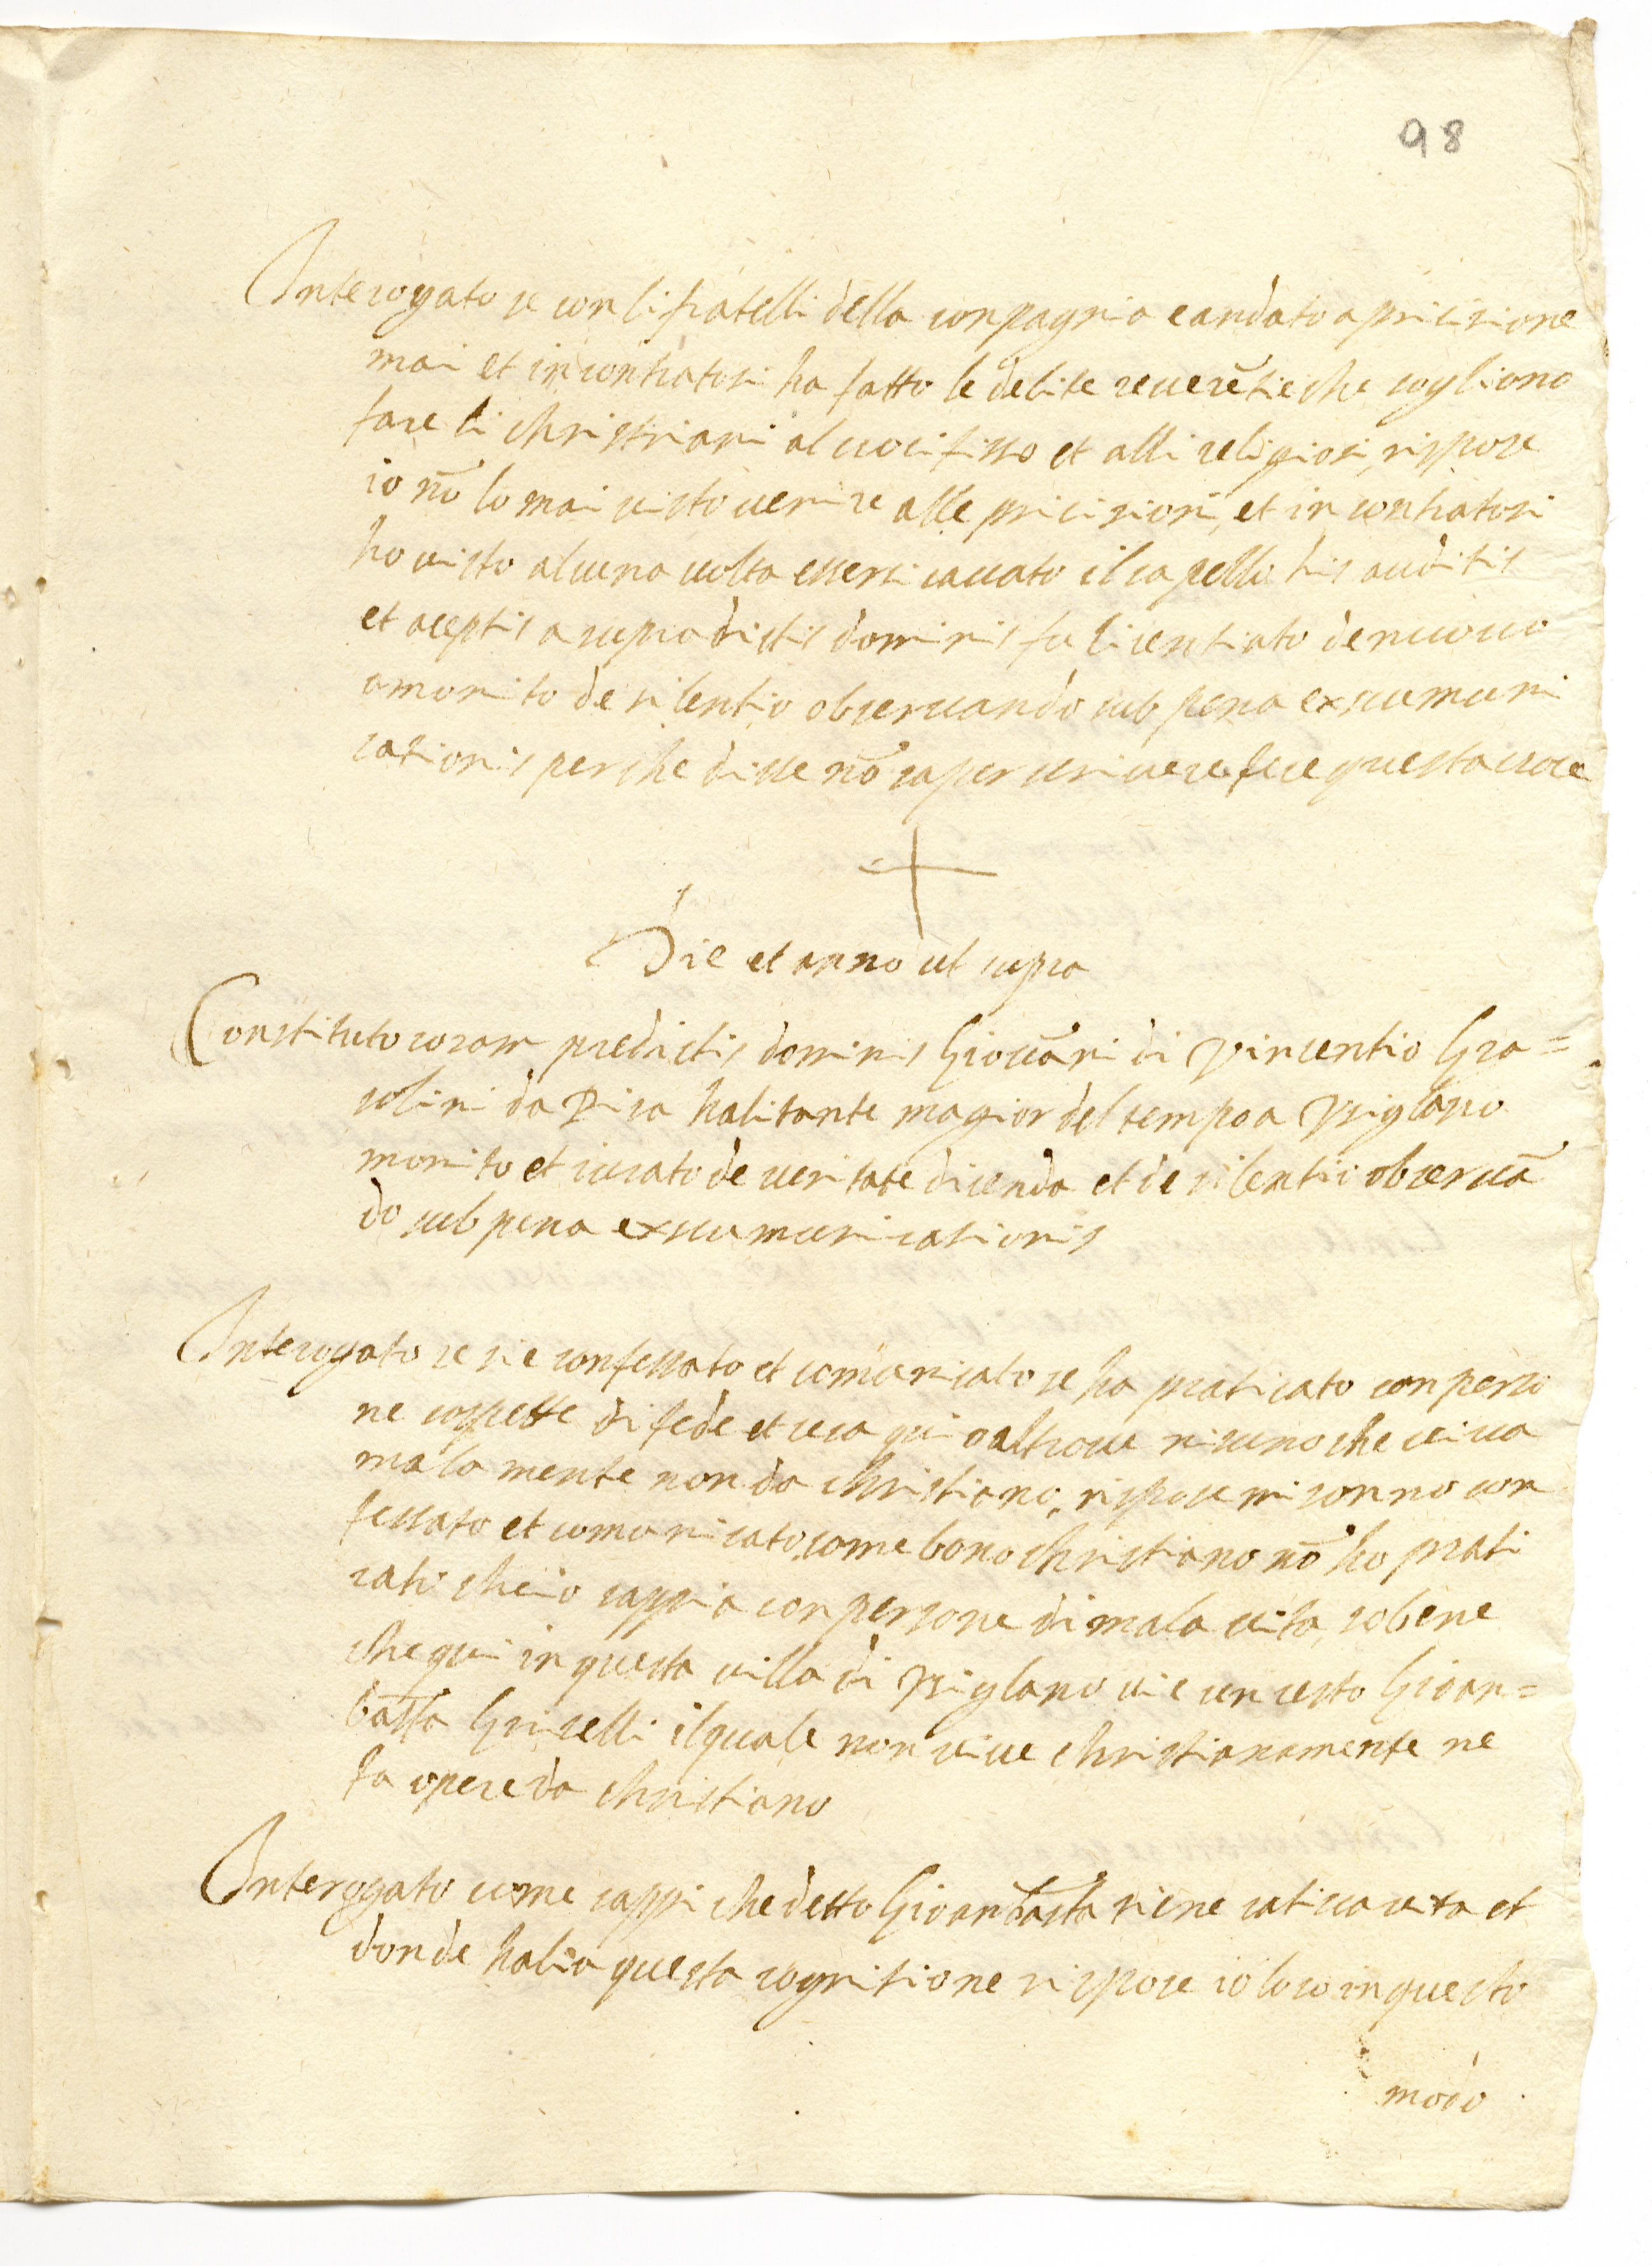 98
Interogato se con li fratelli della conpagnia e andato a pricisione
mai et incontratosi ha fatto le debite reuerẽtie che sogliono
fare li christiani al crocifisso et alli religiosi, rispose
io nõ lo mai uisto uenire alle pricisioni, et incontratosi
ho uisto alcuna uolta essersi cauato il capello his auditis
et aceptis a supradictis dominis fu licentiato de nuouo
amonito de silentio obseruando sub pena excumuni
cationis perche disse nõ saper scriuere fece questa croce
Die et anno ut supra
Constituto coram predictis dominis Giouãni di Vincentio Gra=
solini da Pisa habitante magior del tempo a Viglano
monito et iurato de ueritate dicenda et de silentio obseruã
do sub pena excumunicationis
Interogato se sie confessato et comunicato se ha praticato con perso
ne sospette di fede et se sa qui o altroue nisuno che uiua
mala mente non da christiano, rispose mi sonno con
fessato et comunicato come bono christiano nõ ho prati
cato che io sappia con persone di mala uita, so bene
che qui in questa uilla di Viglano uie un certo Gioan=
batta Griselli il quale non uiue christianamente ne
fa opere da christiano
Interogato come sappi che detto Gioanbatta tiene catiua uita et
donde habia questa cognitione rispose io lo so in questo
modo